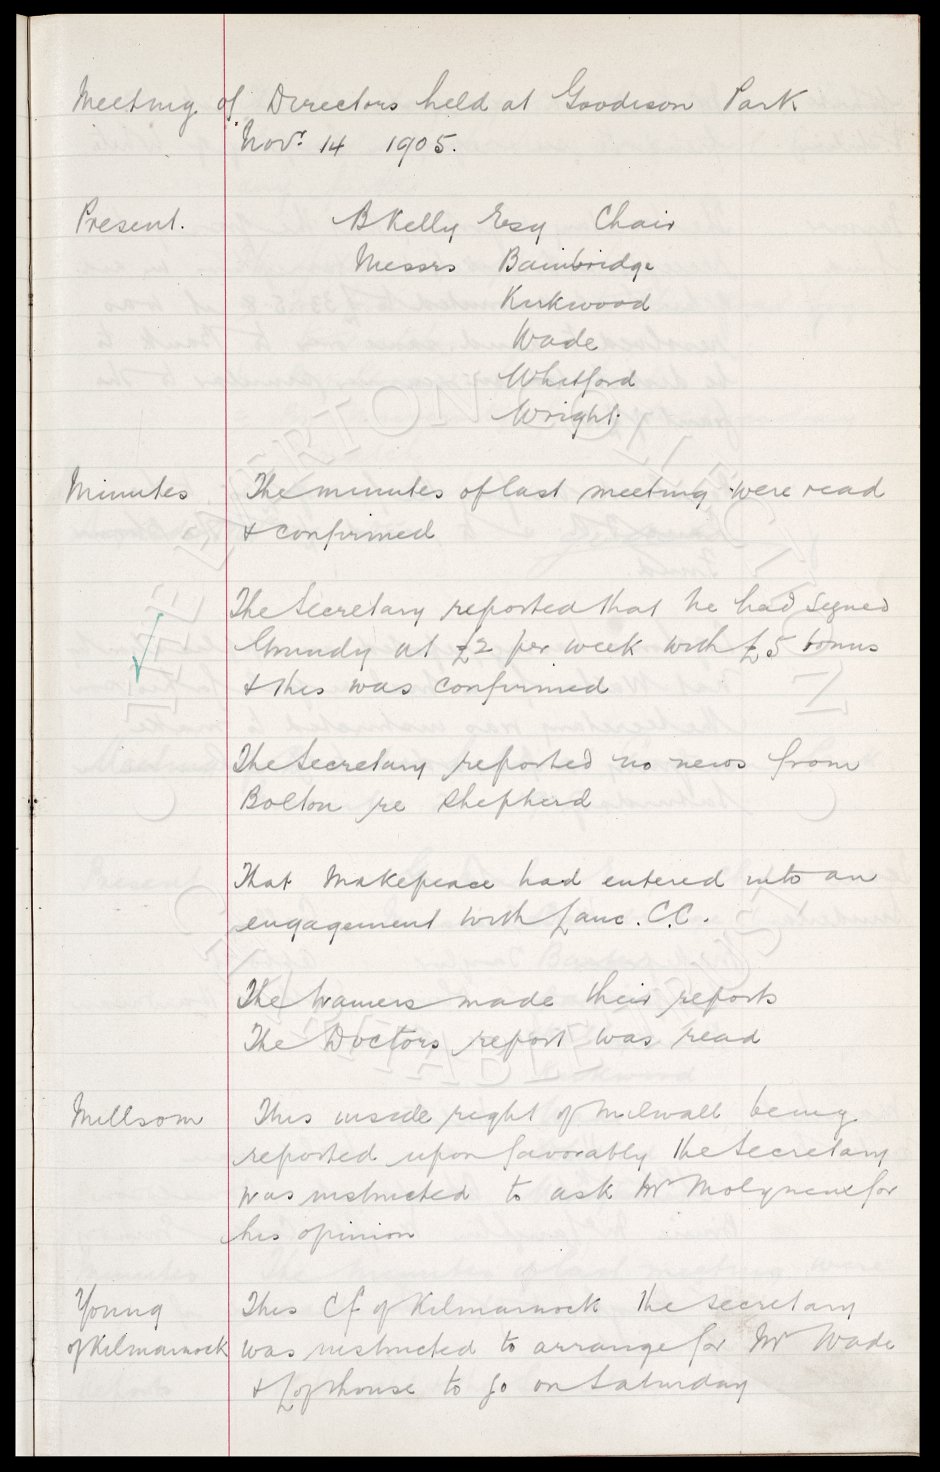 Meeting of Directors held at Goodison Park
Novr 14 1905.
Present. B Kelly Esq Chair
Messrs Bainbridge
Kirkwood
Wade
Whitford
Wright.
Minutes The minutes of last meeting were read
& confirmed
The Secretary reported that he had signed
Grundy at £2 per week with £5 bonus
& this was confirmed
The Secretary reported no news from
Bolton re Shepherd
That Makepeace had entered into an
engagement with Lanc. C.C.
The trainers made their reports
The Doctors report was read
Millsom This inside right of Milwall being
reported upon favorably the Secretary
was instructed to ask Mr Molyneux for
his opinion
Young This Cf of Kilmarnock the Secretary
of Kilmarnock was instructed to arrange for Mr Wade
& Lofthouse to go on Saturday